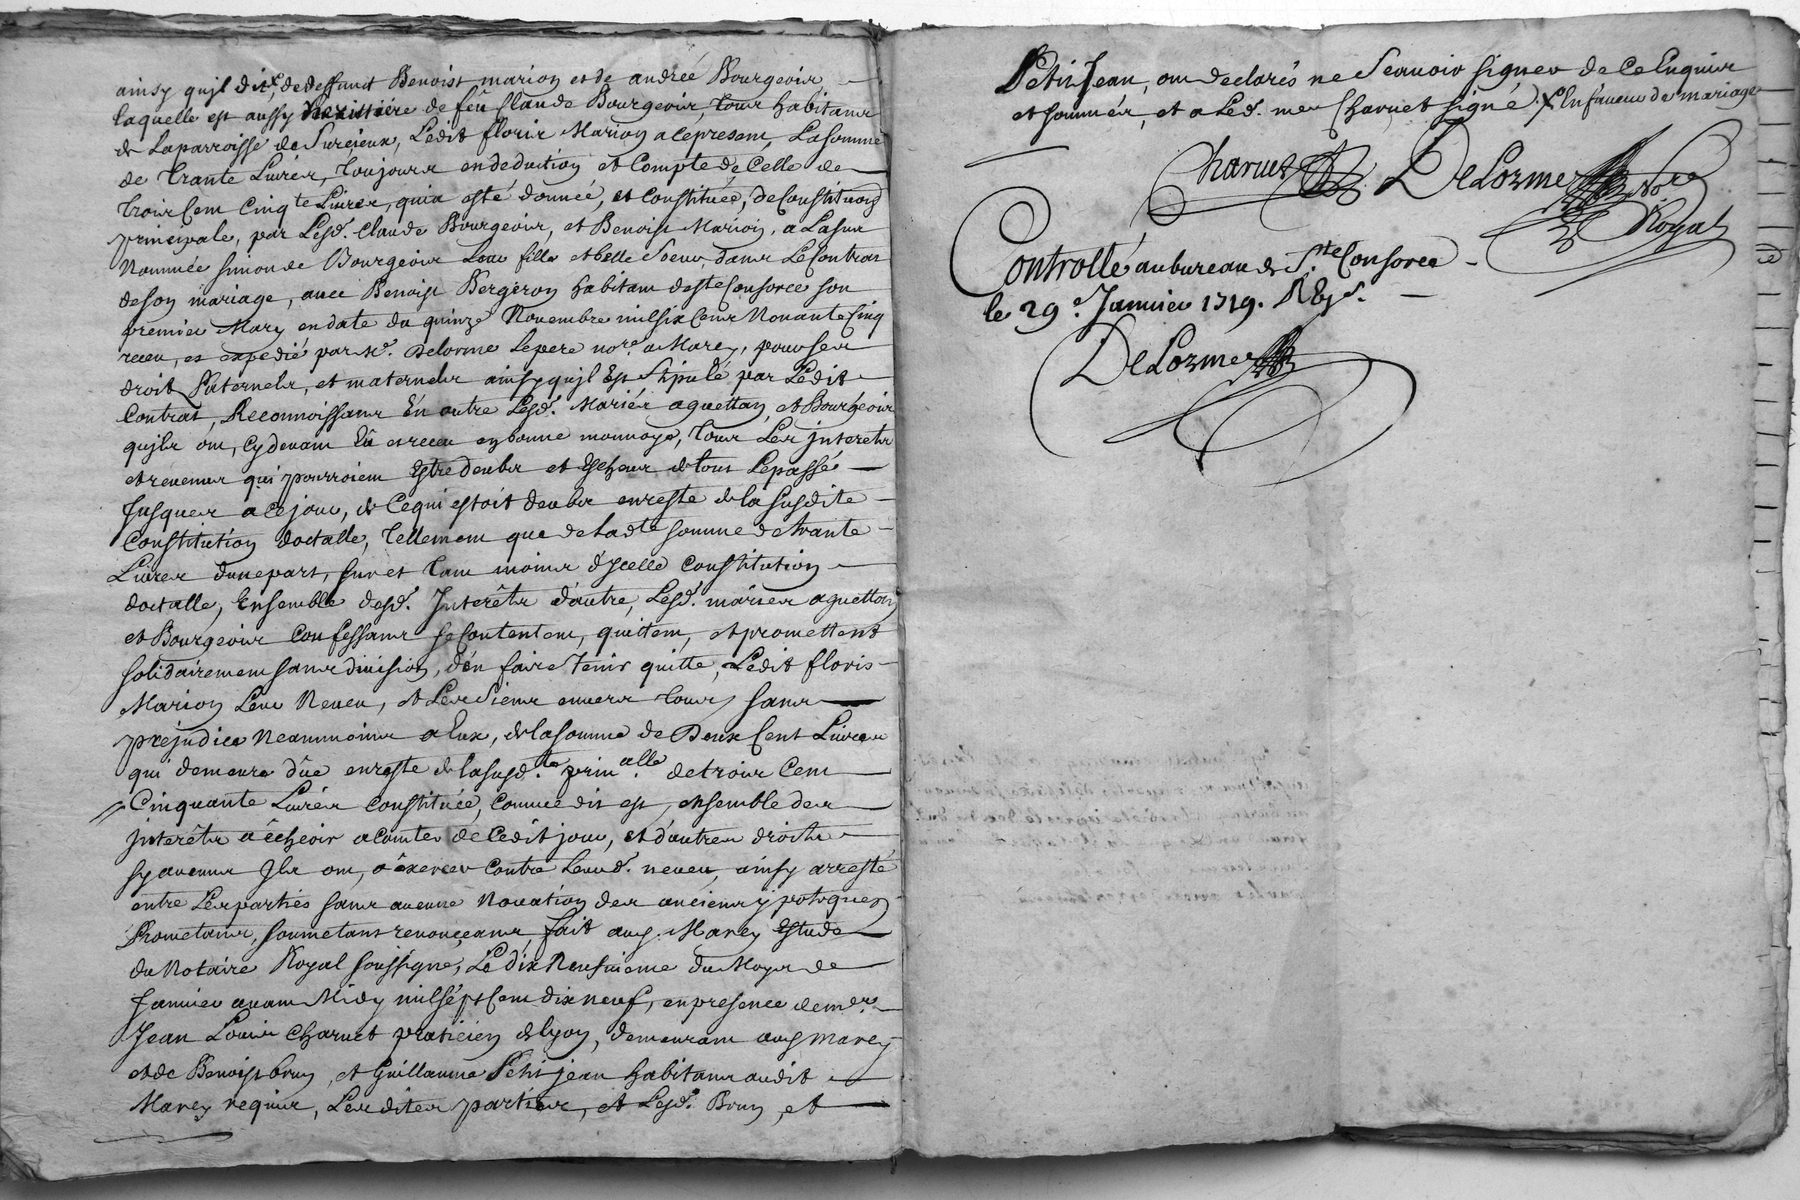 ainsy qu'il dit, de deffunct Benoist marion et de andreé Bourgeois
laquelle est aussy heritiére de feû Claude Bourgeois, tous habitans
de Laparroisse de Surcieux, Ledit floris Marion a cepresent, Lasomme
de trante Livres, toujours en deduction et Compte de Celle de
trois Cent Cinqte Livres, quia esté donneé, et Constituéé, de Constitution
principale, par Lesd. Claude Bourgeois, et Benoist Marion, a Lasus
Nommée Simonde Bourgeois Leur fille et belle Soeur, dans Le Contrat
deson mariage, avec Benoist Bergeron habitant de Ste Consorce son
premier Mary en date du quinze Novembre mil six Cens Nonante Cinq
receu, et expedié par Me. Delorme Lepere nore. a Marcy, pour ses
droits Paternels, et maternels ainsy qu'il Est Stipulé par Ledit
Contrat, Reconnoissans En outre Lesd. Mariés aguettan, et Bourgeois
qu'ils ont, Cydevant Eû et receu en bonne monnoye, tous Les jnterets
et revenus qui pourroient Estre deubs et Escheus de tout Lepassé
Jusques a Cejour, de Cequi estoit deub en reste de la Susdite
Constitution doctalle, tellement que de ladte somme de trante
Livres dune part, sur et tant moins d'ycelle Constitution
doctalle, Ensemble desd. Interêts d'autre, Lesd. mariés aguettan
et Bourgeois Confessans se Contentent, quittent, et promettent
solidairement sans division, d'en faire tenir quitte, Ledit floris
Marion Leur Neveu, et Les Siens envers tous, sans
prejudice Neammoins a Eux, de lasomme de Deux Cent Livres
qui demeure dûe en reste de lasusd.te prin.alle de trois Cent
Cinquante Livrés Constituéé, Comme dit est, ensemble des
jnterêts a êcheoir a Comter de Cedit jour, et d'autres droits
sy aucuns Ils ont, a exercer Contre Leurd. neveu, ainsy arresté
entre Lesparties sans aucune Novation des anciens ypotques
Prometans, soumetans renonceans, fait aud. Marcy Estude
du Notaire Royal soussigné, Le dix Neufvieme du Moys de
Janvier avant Midy mil sept Cent dix neuf, en presence de me.
Jean Louis Charvet praticien de lyon, demeurant aud marcy
et de Benoist brun, et Guillaume Petitjean habitans audit
Marcy requis, Lesdites parties, et Lesd. Brun, et
PetitJean, ont declarés ne Scavoir signer de Ce Enquis
et sommés, et a Led. me Charvet signé. X En faveur de mariage
Charvet DeLorme Nore
Royal
Controllé au bureau de Ste Consorce
le 29e. Janvier 1719. R
DeLorme